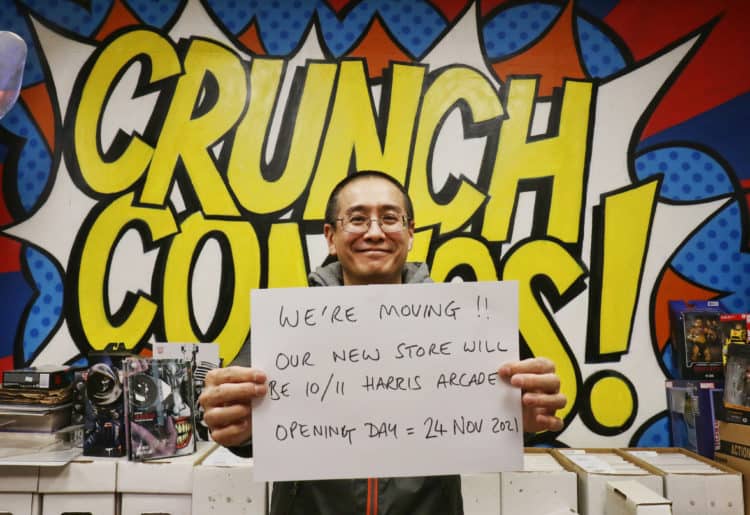 CRUNCH
COMICS!
WE'RE MOVING !!
OUR NEW STORE WILL
BE 10/11 HARRIS ARCADE
OPENING DAY = 24 NOV 2021
MARVEL
ACTION